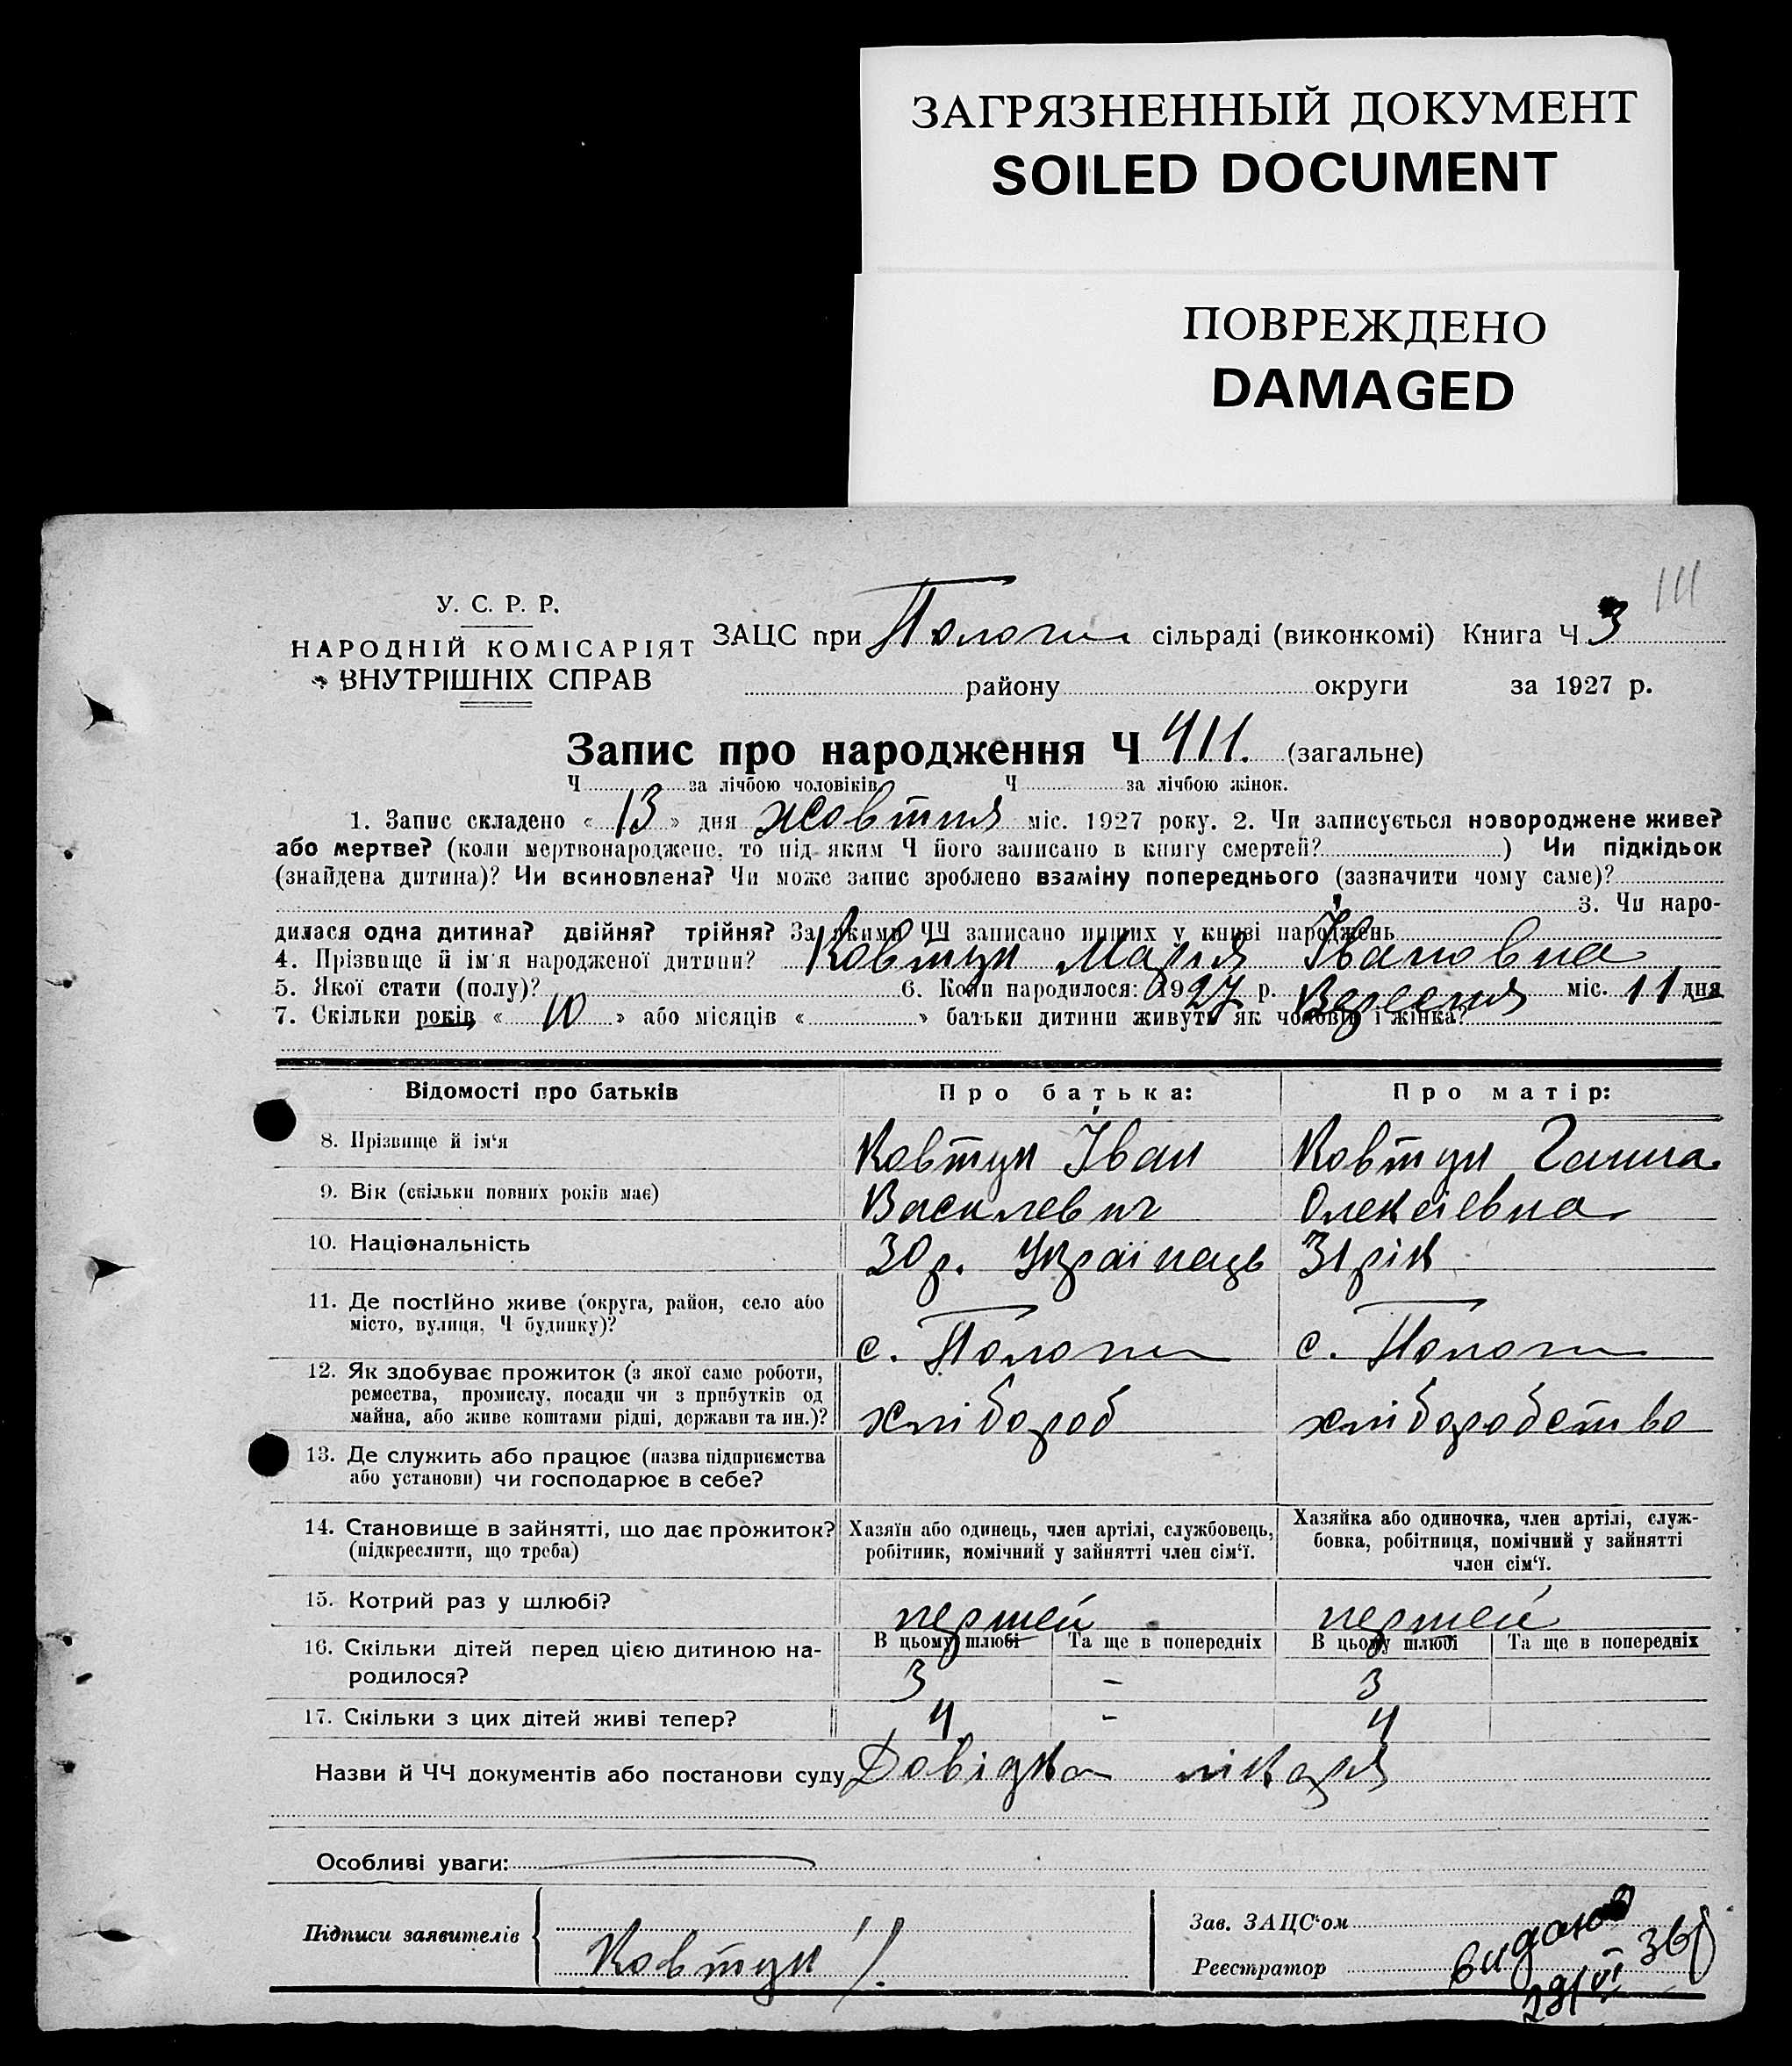 ЗАГРЯЗНЕННЫЙ ДОКУМЕНТ
SOILED DOCUMENT
ПОВРЕЖДЕНО
DAMAGED
111
У. С. Р. Р.
НАРОДНІЙ КОМІСАРІЯТ
ВНУТРІШНІХ СПРАВ
ЗАЦС при Пологи сільраді (виконкомі) Книга Ч 3
району округи за 1927 р.
Запис про народження Ч 411. (загальне)
Ч за лічбою чоловіків Ч за лічбою жінок.
1. Запис складено « 13 » дня жовтня міс. 1927 року. 2. Чи записується новороджене живе?
або мертве? (коли мертвонароджене, то під яким Ч його записано в книгу смертей? ) Чи підкідьок
(знайдена дитина)? Чи всиновлена? Чи може запис зроблено взаміну попереднього (зазначити чому саме)?
3. Чи наро-
дилася одна дитина? двійня? трійня? За якими ЧЧ записано инших у книзі народжень
4. Прізвище й ім'я народженої дитини? Ковтун Марія Івановна
5. Якої стати (полу)? 6. Коли народилося: 1927 р. Вересня міс. 11 дня
7. Скільки років « 10 » або місяців « » батьки дитини живуть як чоловік і жінка?
Відомості про батьків Про батька: Про матір:
8. Прізвище й ім'я Ковтун Іван Ковтун Ганна
9. Вік (скільки повних років має) Василевич Олексіевна
10. Національність 30 р. Українець 31 рік
11. Де постійно живе (округа, район, село або
місто, вулиця, Ч будинку)? с. Пологи с. Пологи
12. Як здобуває прожиток (з якої саме роботи,
ремества, промислу, посади чи з прибутків од
майна, або живе коштами рідні, держави та ин.)? хлібороб хліборобство
13. Де служить або працює (назва підприємства
або установи) чи господарює в себе?
14. Становище в зайнятті, що дає прожиток?
(підкреслити, що треба)
Хазяїн або одинець, член артілі, службовець,
робітник, помічний у зайнятті член сім'ї.
Хазяйка або одиночка, член артілі, служ-
бовка, робітниця, помічний у зайнятті
член сім'ї.
15. Котрий раз у шлюбі? першей першей
16. Скільки дітей перед цією дитиною на-
родилося?
В цьому шлюбі Та ще в попередніх В цьому шлюбі Та ще в попередніх
3 - 3
17. Скільки з цих дітей живі тепер? 4 - 4
Назви й ЧЧ документів або постанови суду Довідка лікаря
Особливі уваги:
Підписи заявителів
Ковтун І.
Зав. ЗАЦС'ом
Реєстратор
29/VI 36